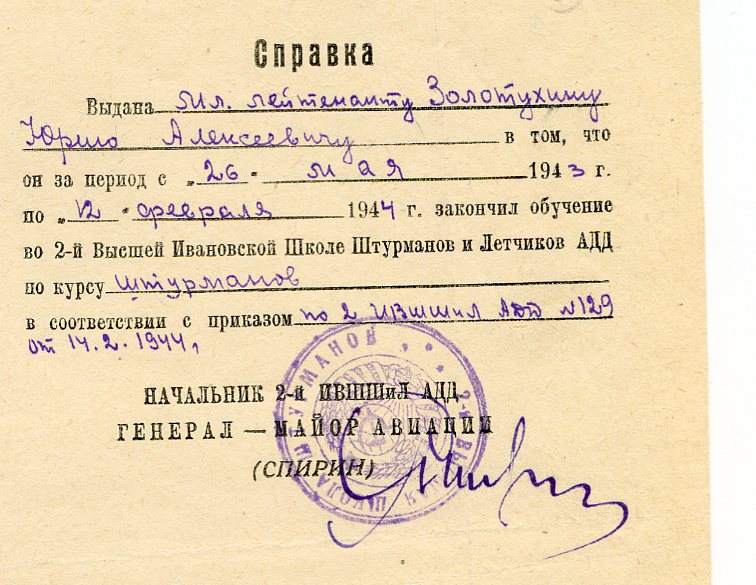 Справка
Выдана Мл. лейтенанту Золотухину
Юрию Алексеевичу в том, что
он за период с „26" мая 1943 г.
по „12" февраля 1944 г. закончил обучение
во 2-й Высшей Ивановской Школе Штурманов и Летчиков АДД
по курсу штурманов
в соответствии с приказом по 2 ИВШШиЛ АДД №129
от 14.2.1944,
НАЧАЛЬНИК 2-й ИВШШиЛ АДД
ГЕНЕРАЛ — МАЙОР АВИАЦИИ
(СПИРИН)